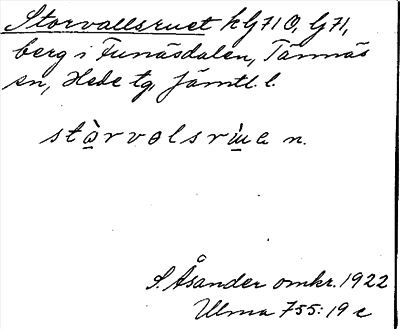 Storvallsruet k G71 O, G71,
berg i Funäsdalen, Tännäs
sn, Hede tg, Jämtl. l.
stòrvolsrẁe n.
S. Åsander omkr. 1922
Ulma 755:19 c